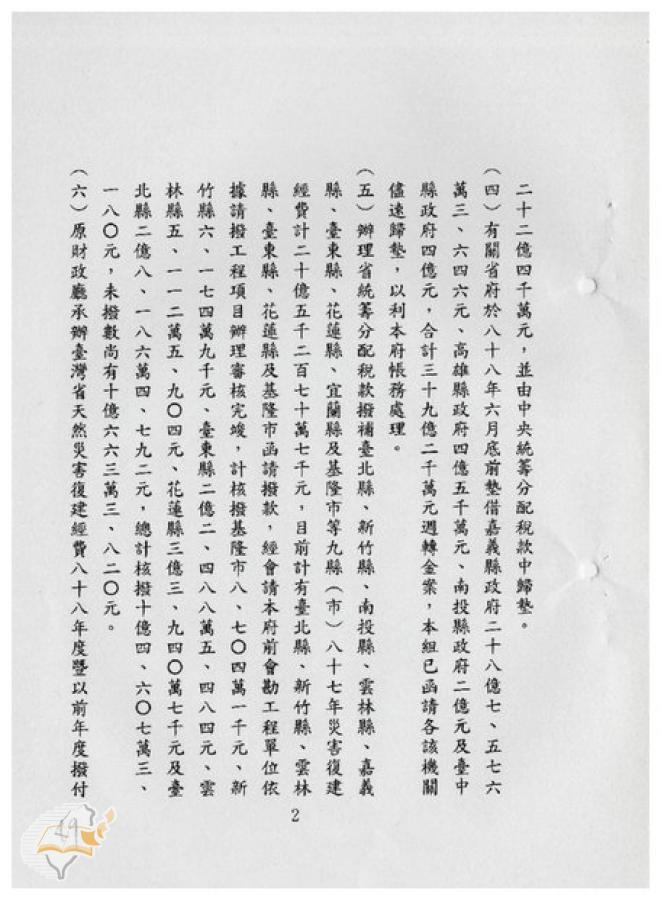 二十二億四千萬元，並由中央統籌分配稅款中歸墊。
（四）有關省府於八十八年六月底前墊借嘉義縣政府二十八億七、五七六
萬三、六四六元、高雄縣政府四億五千萬元、南投縣政府二億元及臺中
縣政府四億元，合計三十九億二千萬元週轉金案，本組已函請各該機關
儘速歸墊，以利本府帳務處理。
（五）辦理省統籌分配稅款撥補臺北縣、新竹縣、南投縣、雲林縣、嘉義
縣、臺東縣、花蓮縣、宜蘭縣及基隆市等九縣（市）八十七年災害復建
經費計二十億五千二百七十萬七千元，目前計有臺北縣、新竹縣、雲林
縣、臺東縣、花蓮縣及基隆市函請撥款，經會請本府前會勘工程單位依
據請撥工程項目辦理審核完竣，計核撥基隆市八、七〇四萬一千元、新
竹縣六、一七四萬九千元、臺東縣二億二、四八八萬五、四八四元、雲
林縣五、一一二萬五、九〇四元、花蓮縣三億三、九四〇萬七千元及臺
北縣二億八、一八六萬四、七九二元，總計核撥十億四、六〇七萬三、
一八〇元，未撥數尚有十億六六三萬三、八二〇元。
（六）原財政廳承辦臺灣省天然災害復建經費八十八年度暨以前年度撥付
2
49